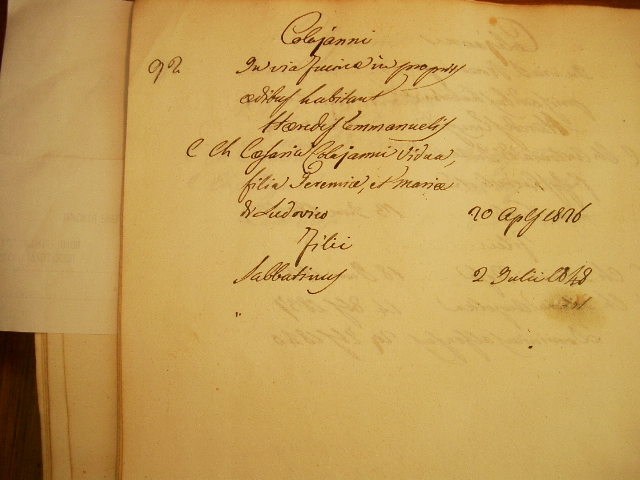 Colajanni
92 In via Furcæ in propriis
ædibus habitant
Hæredes Emmanuelis
C Ch Cæsaria Colajanni Vidua,
filia Jeremiæ, et Mariæ
di Ludovico 20 Aplis 1826
Filii
Sabbatinus 2 Julii 1848
"